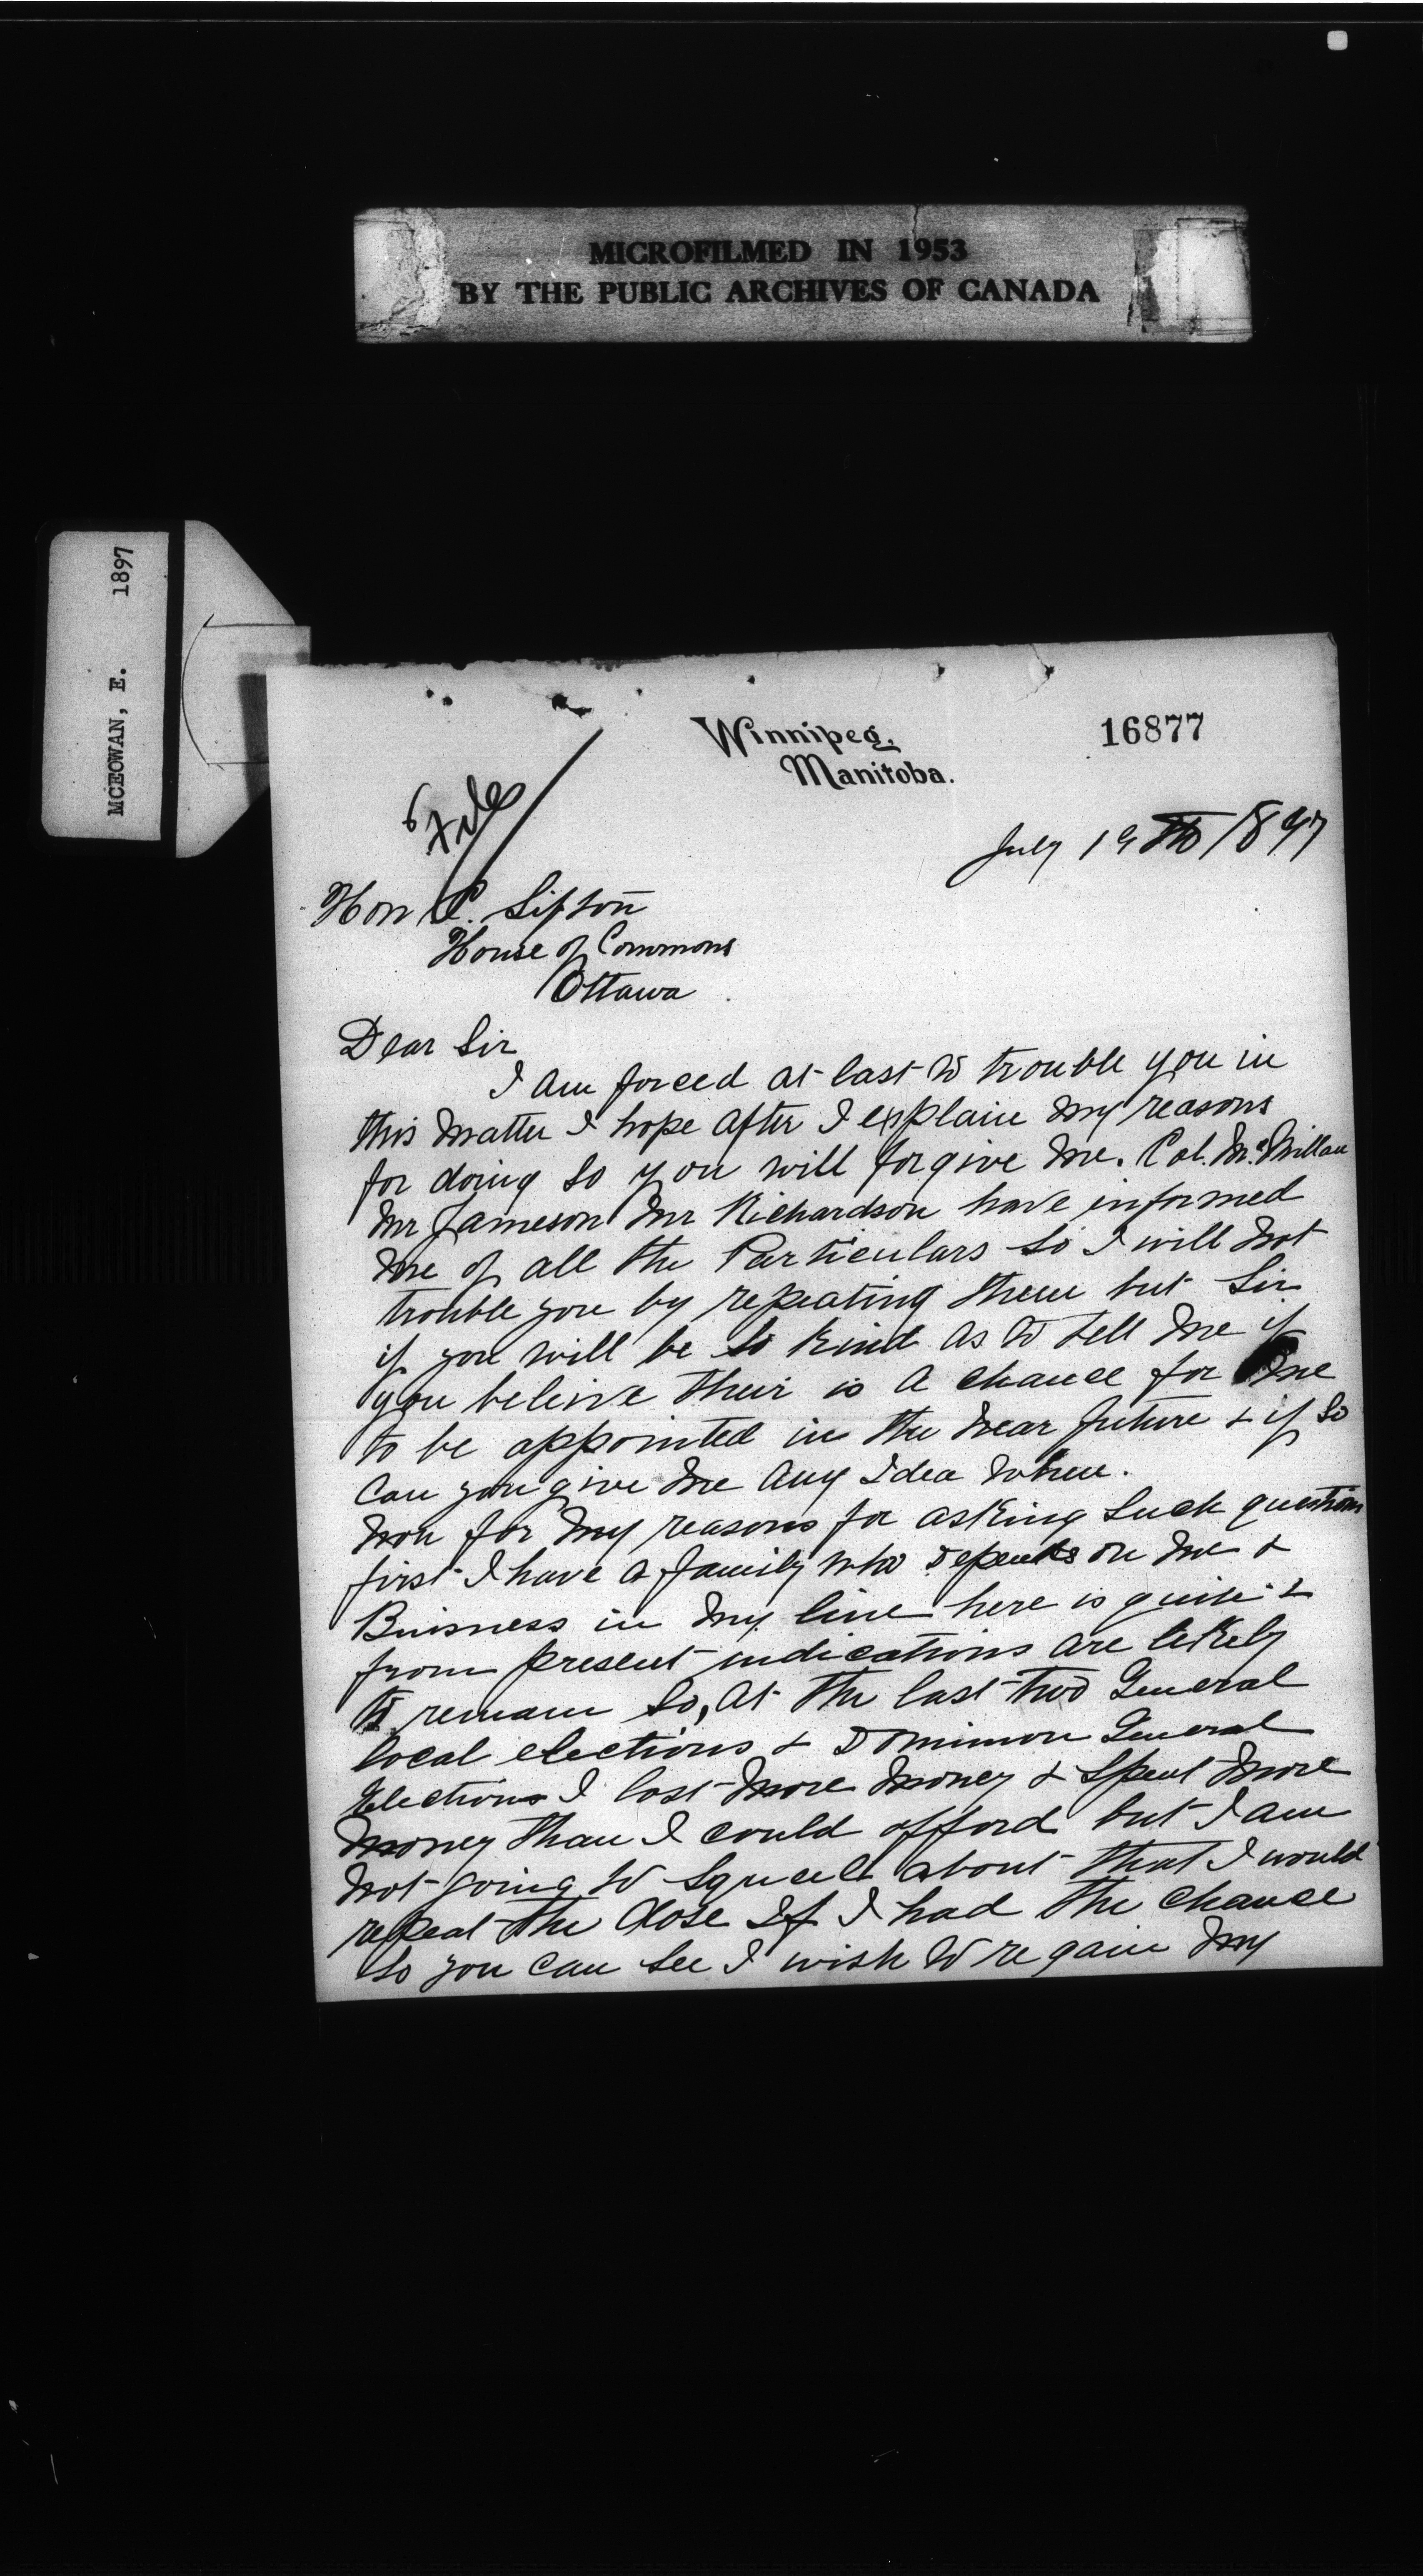 MICROFILMED IN 1953
BY THE PUBLIC ARCHIVES OF CANADA
MCEOWAN, E. 1897
Winnipeg,
Manitoba.
16877
File
July 19th 1897
Hon C. Sifton
House of Commons
Ottawa
Dear Sir
I am forced at last to trouble you in
this matter I hope after I explain my reasons
for doing so you will forgive me. Col. McMillan
Mr Jameson Mr Richardson have informed
me of all the Particulars so I will not
trouble you by repeating them but Sir
if you will be so kind as to tell me if
you beleive their is a chance for me
to be appointed in the near future & if so
can you give me any Idea when.
Now for my reasons for asking such questions
first I have a family who depends on me &
Buisness in my line here is quiet &
from present indications are likely
to remain so, at the last two General
local elections & Dominion General
Elections I lost more money & spent more
money than I could afford but I am
not going to squeel about that I would
repeat the dose If I had the chance
so you can see I wish to regain my